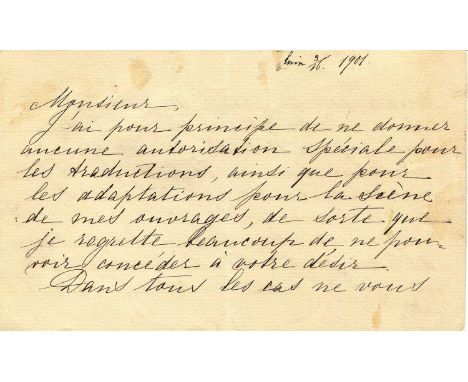 Juin 3/16. 1901
Monsieur,
J'ai pour principe de ne donner
aucune autorisation spéciale pour
les traductions, ainsi que pour
les adaptations pour la scène
de mes ouvrages, de sorte que
je regrette beaucoup de ne pou-
voir concéder à votre désir.
Dans tous les cas ne vous